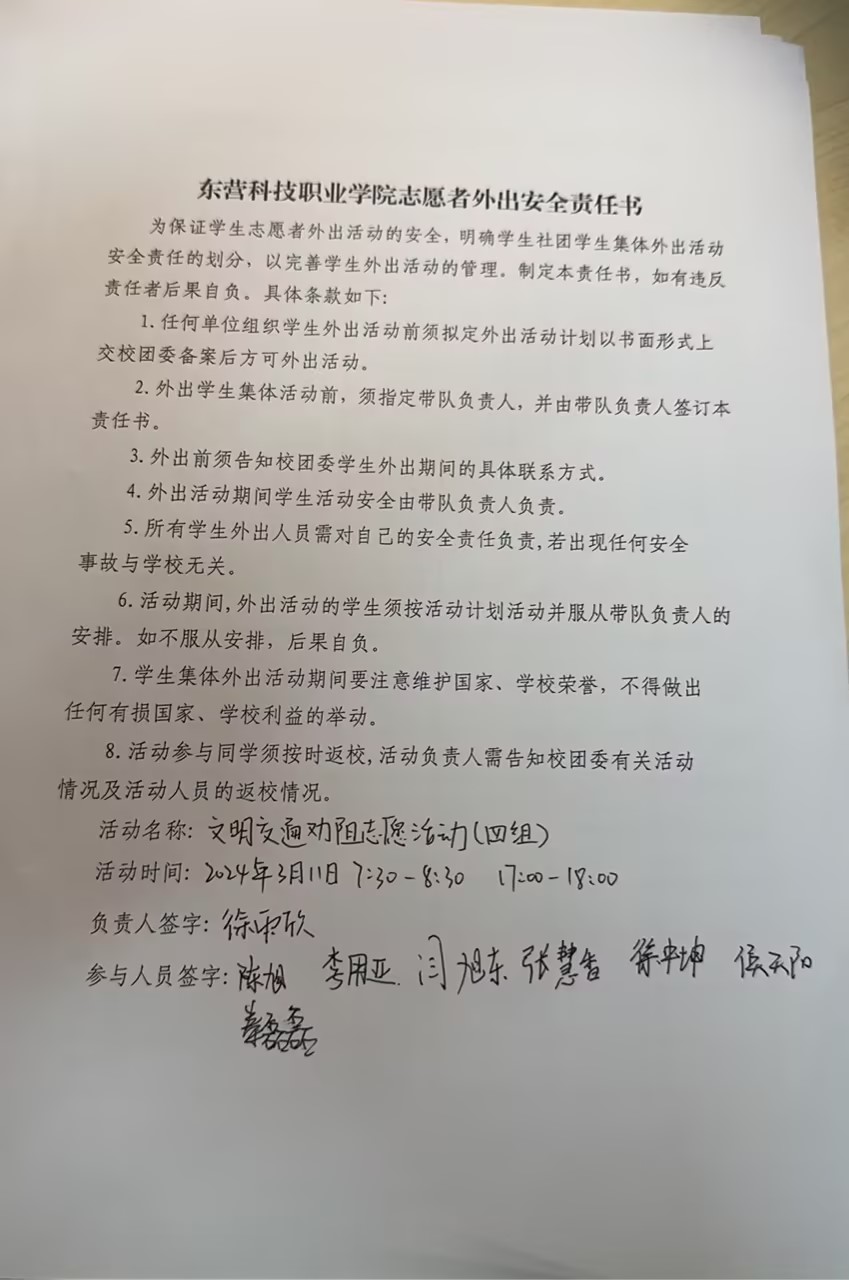 东营科技职业学院志愿者外出安全责任书
为保证学生志愿者外出活动的安全，明确学生社团学生集体外出活动
安全责任的划分，以完善学生外出活动的管理。制定本责任书，如有违反
责任者后果自负。具体条款如下：
1. 任何单位组织学生外出活动前须拟定外出活动计划以书面形式上
交校团委备案后方可外出活动。
2. 外出学生集体活动前，须指定带队负责人，并由带队负责人签订本
责任书。
3. 外出前须告知校团委学生外出期间的具体联系方式。
4. 外出活动期间学生活动安全由带队负责人负责。
5. 所有学生外出人员需对自己的安全责任负责,若出现任何安全
事故与学校无关。
6. 活动期间,外出活动的学生须按活动计划活动并服从带队负责人的
安排。如不服从安排，后果自负。
7. 学生集体外出活动期间要注意维护国家、学校荣誉，不得做出
任何有损国家、学校利益的举动。
8. 活动参与同学须按时返校,活动负责人需告知校团委有关活动
情况及活动人员的返校情况。
活动名称: 文明交通劝阻志愿活动(四组)
活动时间: 2024年3月11日 7:30-8:30 17:00-18:00
负责人签字: 徐雨欣
参与人员签字: 陈旭 李用亚 闫旭东 张慧香 侯天阳